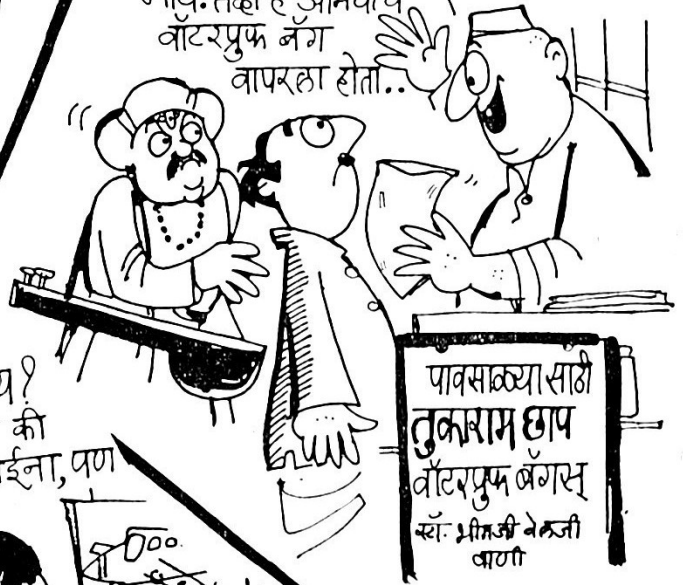 वॉटरप्रुफ बॅग
वापरला होता..
की
पण
पावसाळ्यासाठी
तुकाराम छाप
वॉटरप्रुफ बॅगस्
स्टॉ. भीमजी वेलजी
वाणी